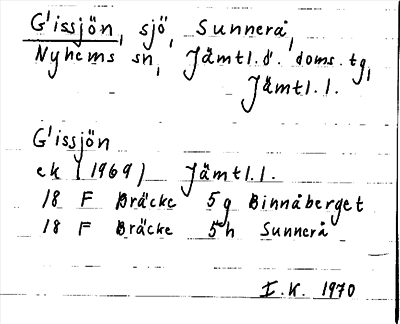 G'issjön, sjö, Sunnerå,
Nyhems sn, Jämtl.ö. doms.tg,
Jämtl.l.
G'issjön
ek (1969) Jämtl.l.
18 F Bräcke 5g Binnåberget
18 F Bräcke 5h Sunnerå
I.K. 1970